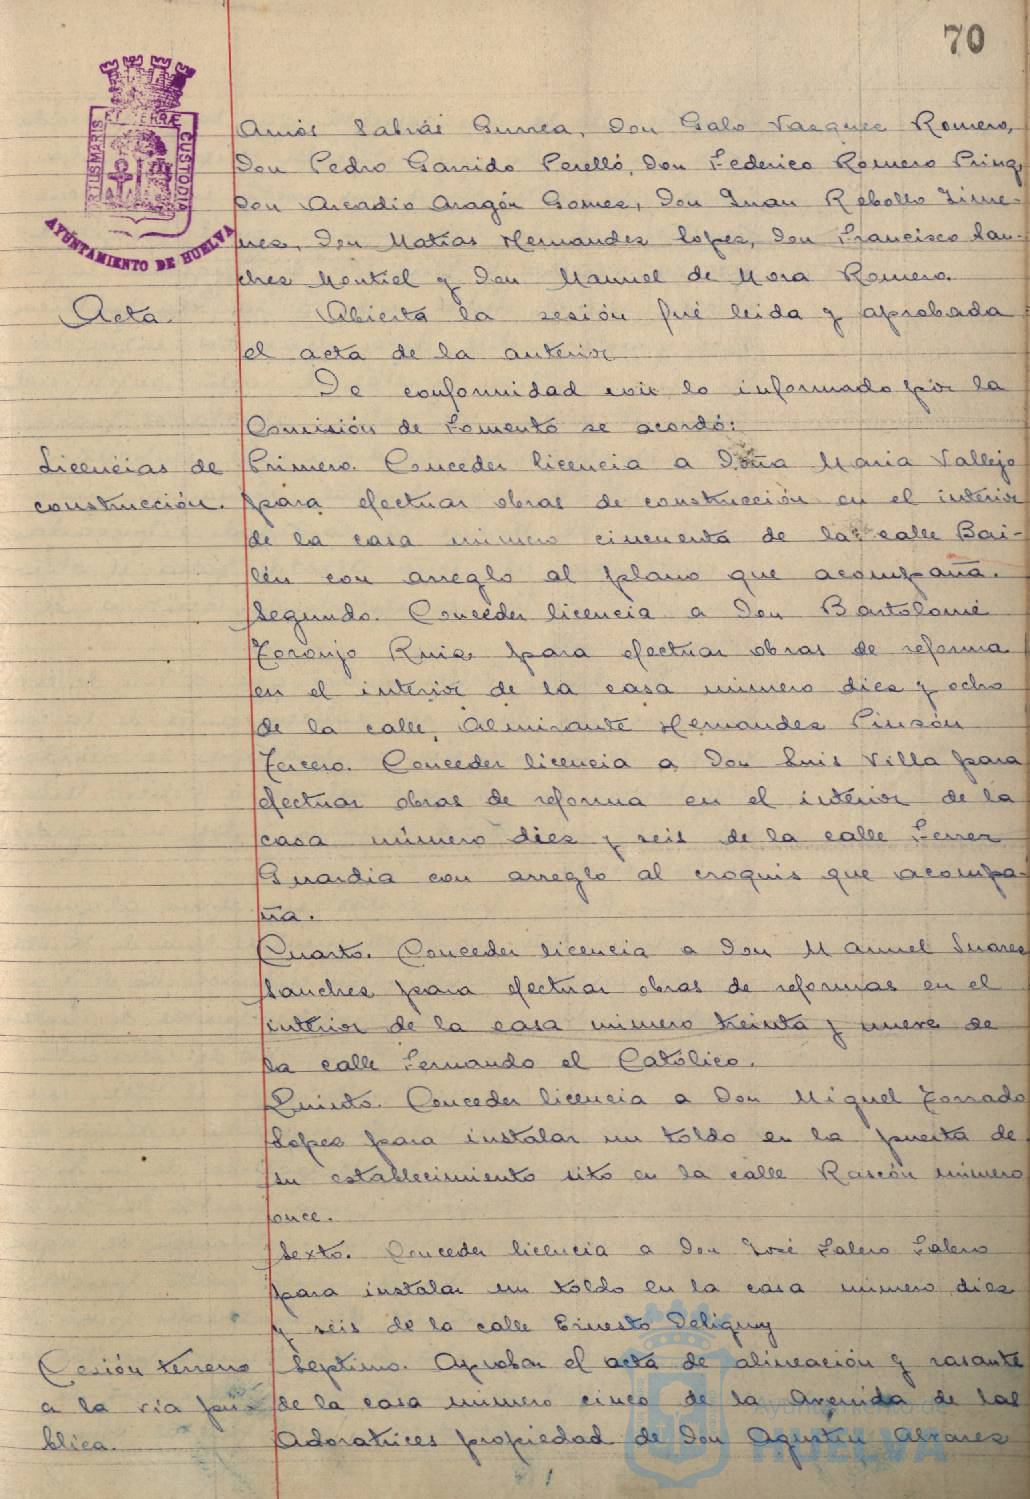 70
PORTUS MARIS ET TERRÆ CUSTODIA
AYUNTAMIENTO DE HUELVA
Amós Sabrás Gurrea, Don Galo Vazquez Romero,
Don Pedro Garrido Perelló, Don Federico Romero Prinq,
Don Arcadio Aragón Gomez, Don Juan Rebollo Jime-
nez, Don Matías Hernandez Lopez, Don Francisco San-
chez Montiel y Don Manuel de Mora Romero.
Acta.
Abierta la sesión fué leida y aprobada
el acta de la anterior
De conformidad con lo informado por la
Comisión de Fomento se acordó:
Licencias de
construcción.
Primero. Conceder licencia a Doña Maria Vallejo
para efectuar obras de construcción en el interior
de la casa número cincuenta de la calle Bai-
lén con arreglo al plano que acompaña.
Segundo. Conceder licencia a Don Bartolomé
Toronjo Ruiz para efectuar obras de reforma
en el interior de la casa número diez y ocho
de la calle, Almirante Hernandez Pinzón
Tercero. Conceder licencia a Don Luis Villa para
efectuar obras de reforma en el interior de la
casa número diez y seis de la calle Ferrer
Guardia con arreglo al croquis que acompa-
ña.
Cuarto. Conceder licencia a Don Manuel Suarez
Sanchez para efectuar obras de reformas en el
interior de la casa número treinta y nueve de
la calle Fernando el Católico.
Quinto. Conceder licencia a Don Miguel Torrado
Lopez para instalar un toldo en la puerta de
su establecimiento sito en la calle Rascón número
once.
Sexto. Conceder licencia a Don José Falero Falero
para instalar un toldo en la casa número diez
y seis de la calle Ernesto Deligny
Cesión terreno
a la via pú-
blica.
Septimo. Aprobar el acta de alineación y rasante
de la casa número cinco de la Avenida de las
Adoratrices propiedad de Don Agustin Alvarez
HUELVA